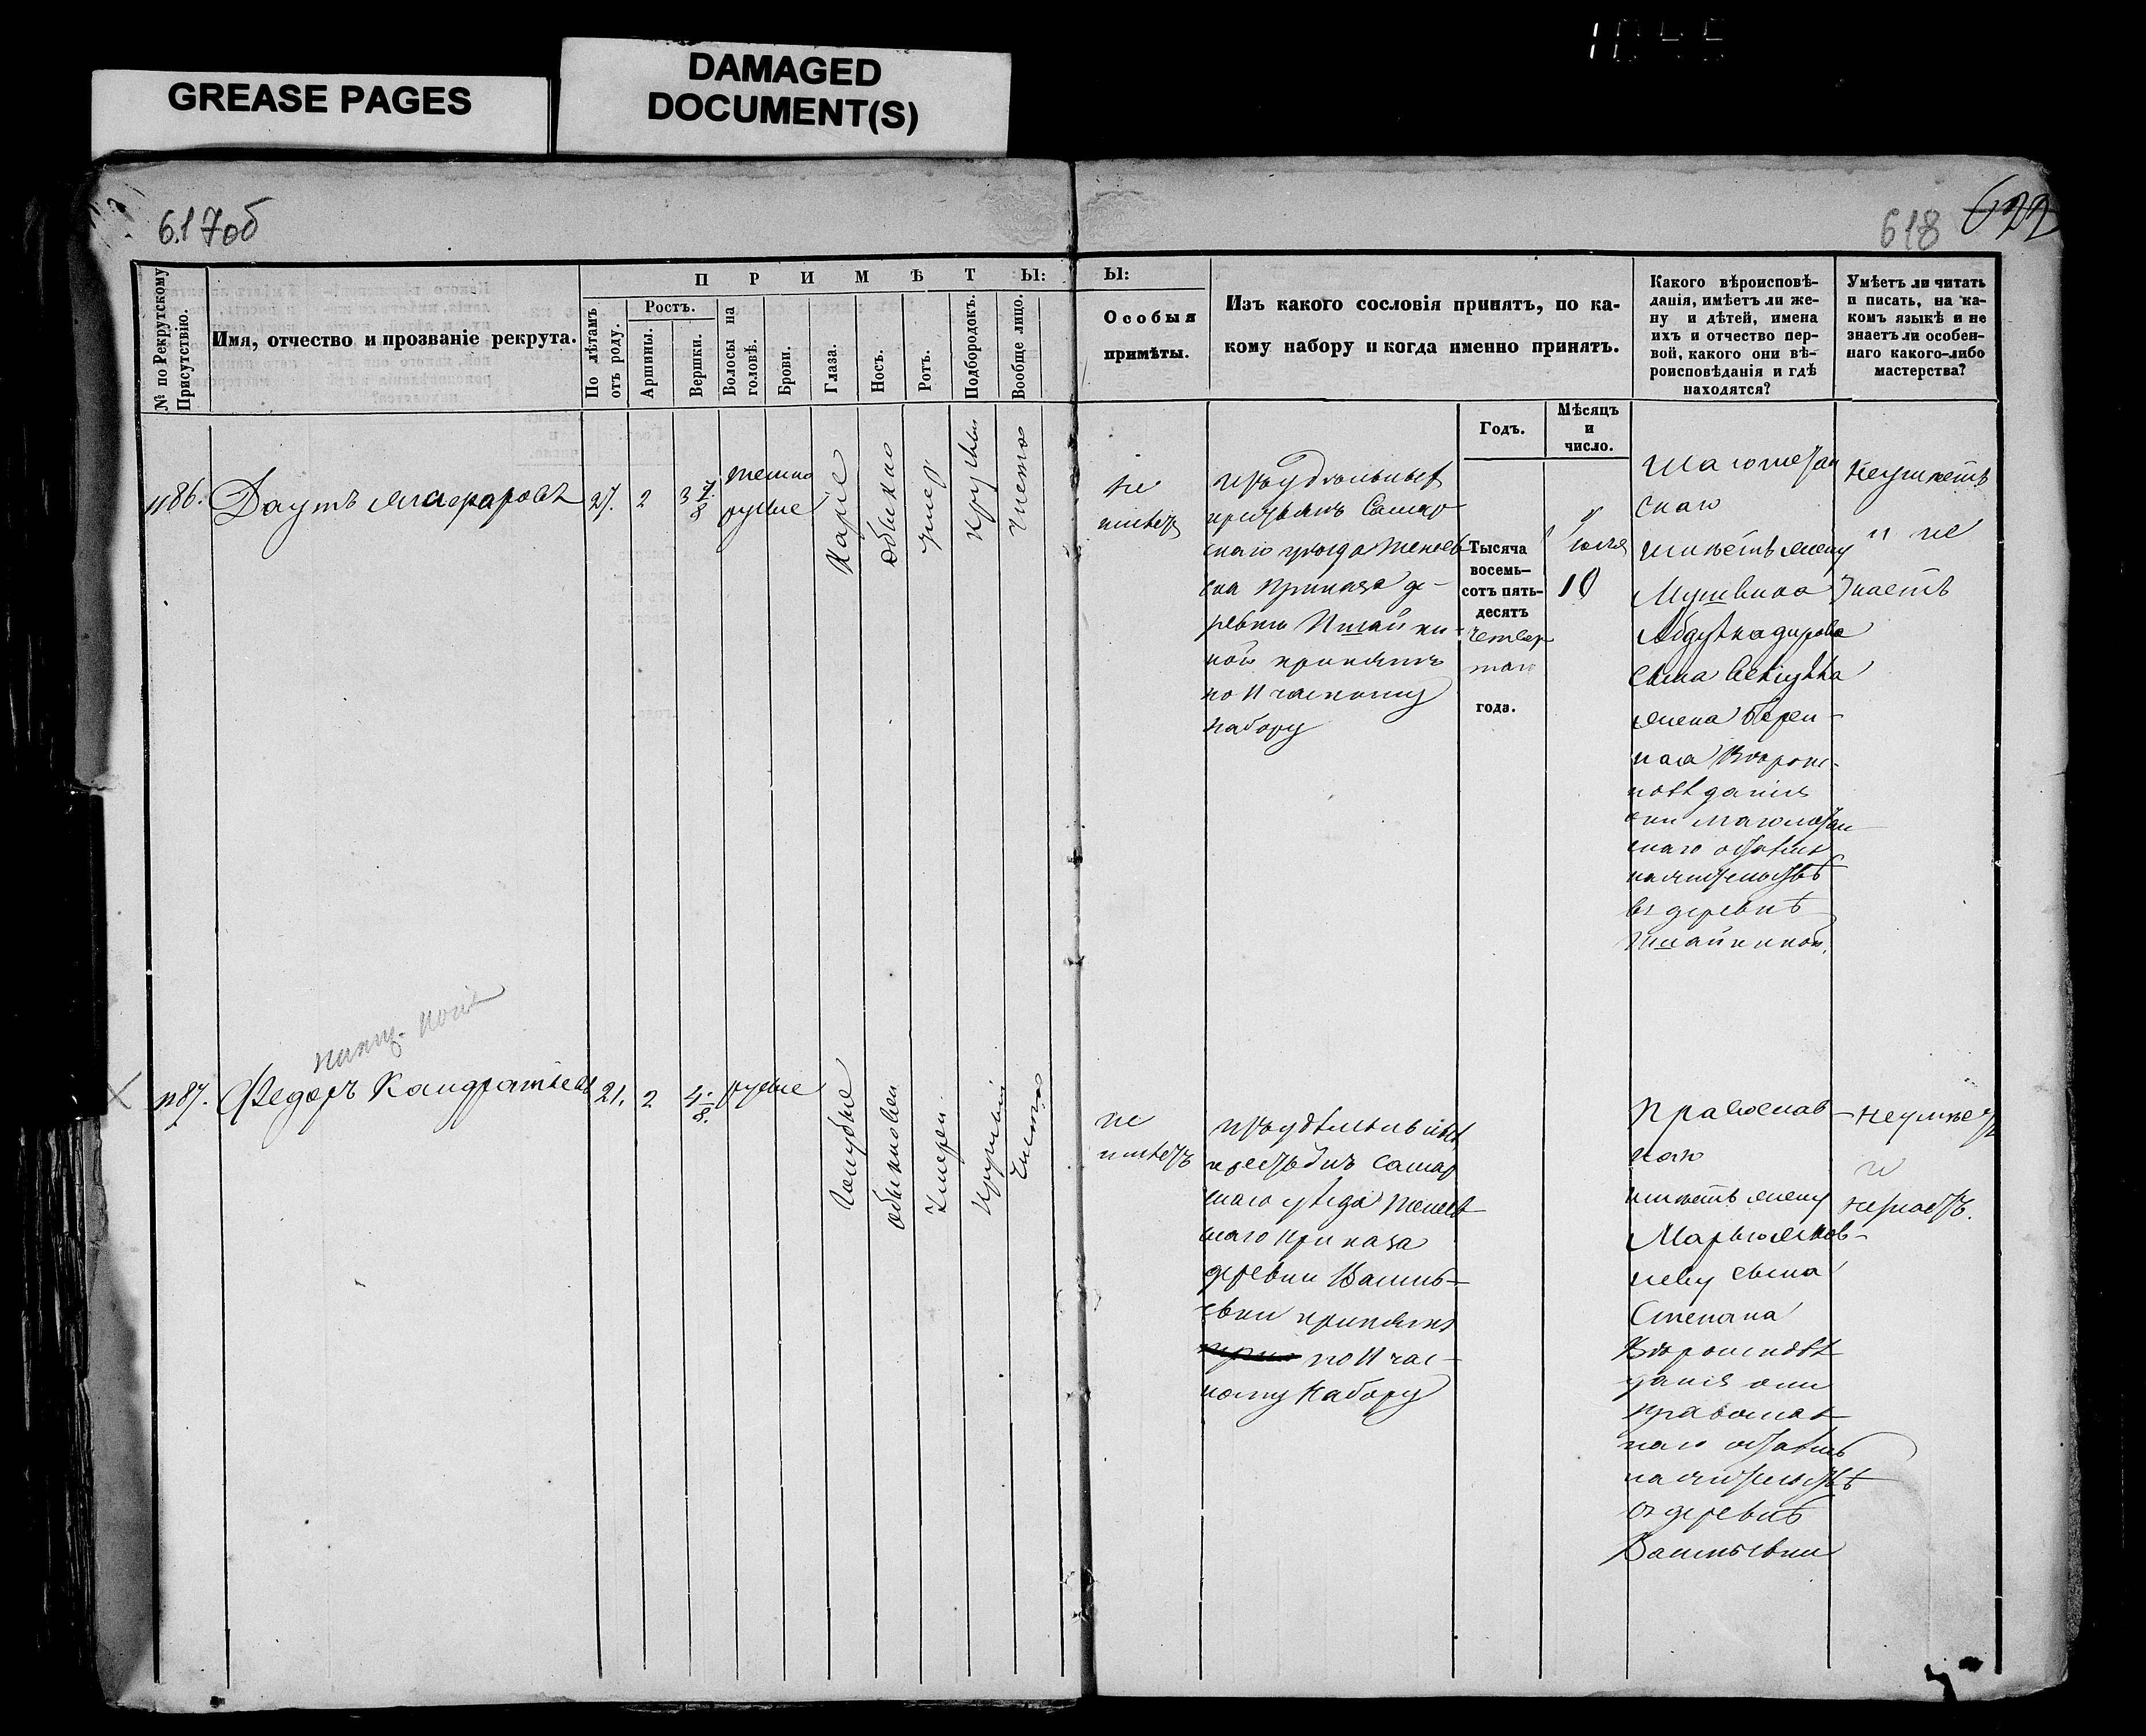 GREASE PAGES
DAMAGED
DOCUMENT(S)
617 об
618 622
№ по Рекрутскому
Присутствію.
Имя, отчество и прозваніе рекрута.
ПРИМѢТЫ:
По лѣтамъ
отъ роду.
Ростъ.
Аршины.
Вершки.
Волосы на
головѣ.
Брови.
Глаза.
Носъ.
Ротъ.
Подбородокъ.
Вообще лицо.
Ы:
Особыя
примѣты.
Изъ какого сословія принятъ, по ка-
кому набору и когда именно принятъ.
Годъ.
Мѣсяцъ
и
число.
Какого вѣроисповѣ-
данія, имѣетъ ли же-
ну и дѣтей, имена
ихъ и отчество пер-
вой, какого они вѣ-
роисповѣданія и гдѣ
находятся?
Умѣетъ ли читать
и писать, на ка-
комъ языкѣ и не
знаетъ ли особен-
наго какого-либо
мастерства?
1186.
Даутъ
27.
2
3 7/8
темно
русые
Каріе
Обыкно
умер
Кругл
Чисто
не
имѣетъ
изъ удѣльныхъ
крестьянъ Самар
скаго уѣзда
приказа де-
ревни Ишайки-
ной принятъ
по 11 частному
набору
Тысяча
восемь-
сотъ пять-
десятъ
четвер
таго
года.
Іюля
10
Магометан
скаго
имѣетъ жену
Абдулкадирова
сына
жена берем-
ная Вѣроис-
повѣданія
они магометан
скаго остались
на жительствѣ
въ деревнѣ
Ишайкиной.
Неумѣетъ
и не
знаетъ
1187.
Федоръ Кандратьевъ
21.
2
4 /8.
русые
Голубые
обыкновен
умерен
Круглый
Чисто
не
имѣетъ
изъ удѣльныхъ
крестьянъ Самар
скаго уѣзда
скаго приказа
деревни Василь-
евки принятъ
по 11 час-
тному набору
Православ-
наго
имѣетъ жену
Марью Яков-
леву сына
Степана
Вѣроисповѣ
данія они
православ
наго остались
на жительствѣ
въ деревнѣ
Васильевки
неумѣетъ
и
незнаетъ.